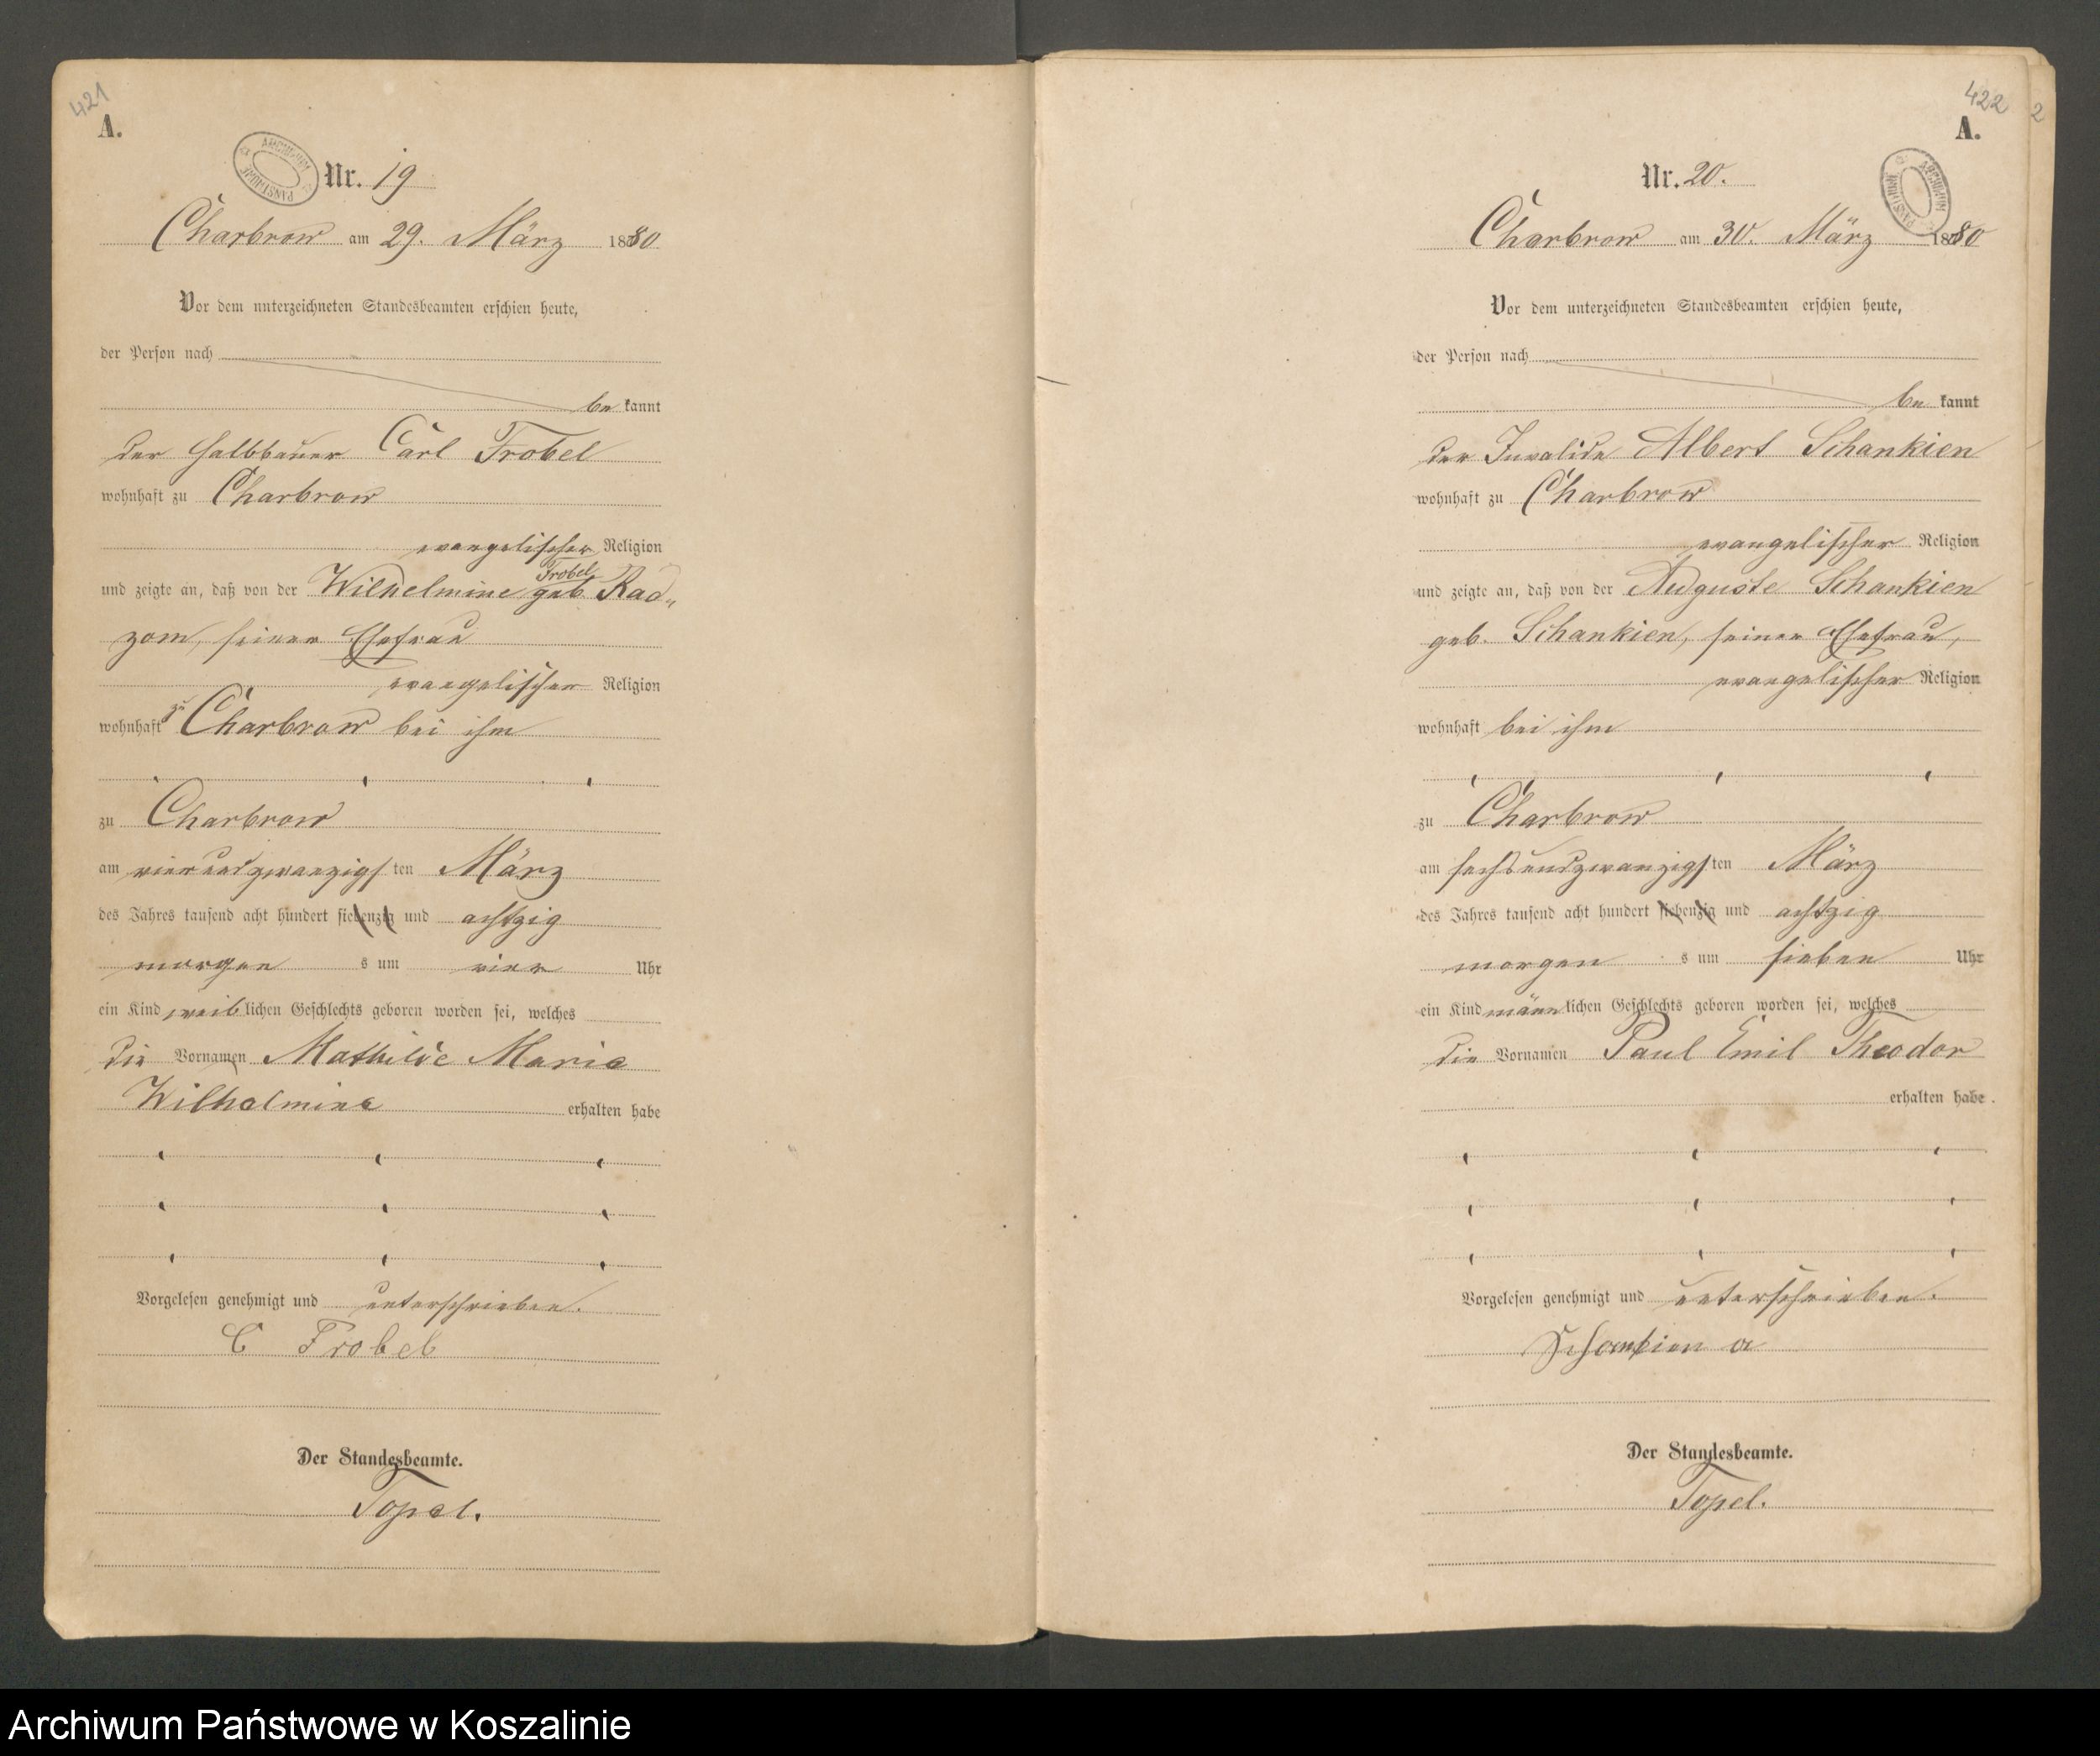 421
A.
ARCHIWUM PAŃSTWOWE
Nr. 19
Charbrow am 29. März 1880
Vor dem unterzeichneten Standesbeamten erschien heute,
der Person nach
be kannt
der Halbbauer Carl Frobel
wohnhaft zu Charbrow
evangelischer Religion
Frobel
und zeigte an, daß von der Wilhelmine geb. Rad„
zom, seiner Ehefrau
evangelischer Religion
wohnhaft zu Charbrow bei ihm
zu Charbrow
am vierundzwanzigsten März
des Jahres tausend acht hundert siebenzig und achtzig
morgens um vier Uhr
ein Kind weiblichen Geschlechts geboren worden sei, welches
die Vornamen Mathilde Marie
Wilhelmine erhalten habe
Vorgelesen genehmigt und unterschrieben.
C Frobel
Der Standesbeamte.
Topel.
422
2
A.
ARCHIWUM PAŃSTWOWE
Nr. 20.
Charbrow am 30. März 1880
Vor dem unterzeichneten Standesbeamten erschien heute,
der Person nach
be kannt
der Invalide Albert Schankien
wohnhaft zu Charbrow
evangelischer Religion
und zeigte an, daß von der Auguste Schankien
geb. Schankien, seiner Ehefrau,
evangelischer Religion
wohnhaft bei ihm
zu Charbrow
am sechsundzwanzigsten März
des Jahres tausend acht hundert siebenzig und achtzig
morgens um sieben Uhr
ein Kind männlichen Geschlechts geboren worden sei, welches
die Vornamen Paul Emil Theodor
erhalten habe.
Vorgelesen genehmigt und unterschrieben.
Schankien a
Der Standesbeamte.
Topel.
Archiwum Państwowe w Koszalinie